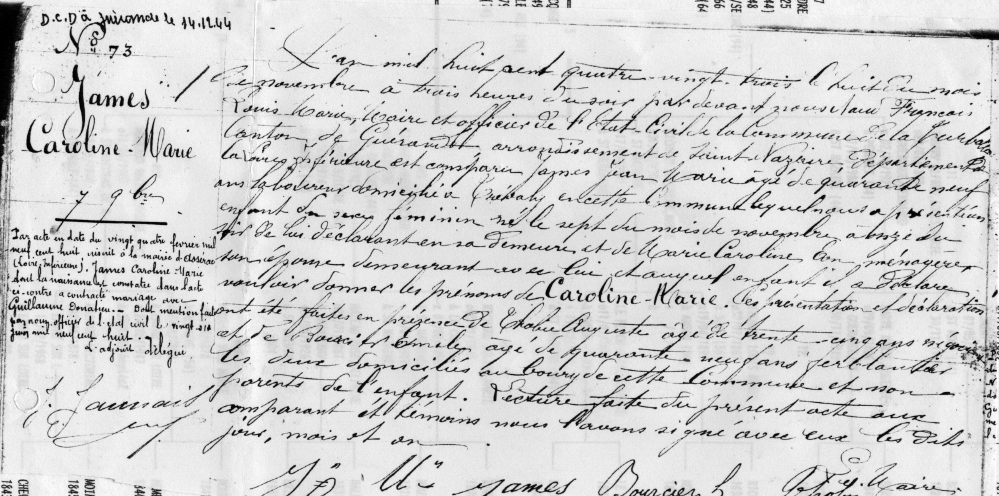 D.C.D à Guérande le 14.12.44
No 73
James
Caroline-Marie
7 9bre
Par acte en date du vingt quatre février mil
neuf cent huit réuni à la mairie d'Assérac
(Loire Inférieure). James Caroline Marie
dont la naissance est constatée dans l'acte
ci-contre a contracté mariage avec
Guillaume Donatien. — Dont mention faite
par nous, officier de l'état civil le vingt-six
juin mil neuf cent huit.
L'adjoint délégué,
L'an mil huit cent quatre-vingt-trois le huit du mois
de novembre à trois heures du soir par devant nous François
Louis Marie, Maire et officier de l'Etat-Civil de la commune de la Turballe
Canton de Guérande arrondissement de Saint-Nazaire Département de
la Loire Inférieure est comparu James Jean Marie âgé de quarante neuf
ans laboureur domicilié à en cette Commune lequel nous a présenté un
enfant du sexe féminin né le sept du mois de novembre à onze du
soir de lui déclarant en sa demeure et de Marie Caroline ménagère
son épouse demeurant avec lui et auquel enfant il a déclaré
vouloir donner les prénoms de Caroline-Marie. Les présentation et déclaration
ont été faites en présence de Auguste âgé de trente-cinq ans
et de Emile, âgé de quarante-neuf ans ferblantier
les deux domiciliés au bourg de cette Commune et non
parents de l'enfant. Lecture faite du présent acte aux
comparant et témoins nous l'avons signé avec eux les dits
jour, mois et an
Jn Mie James Bourcier Maire